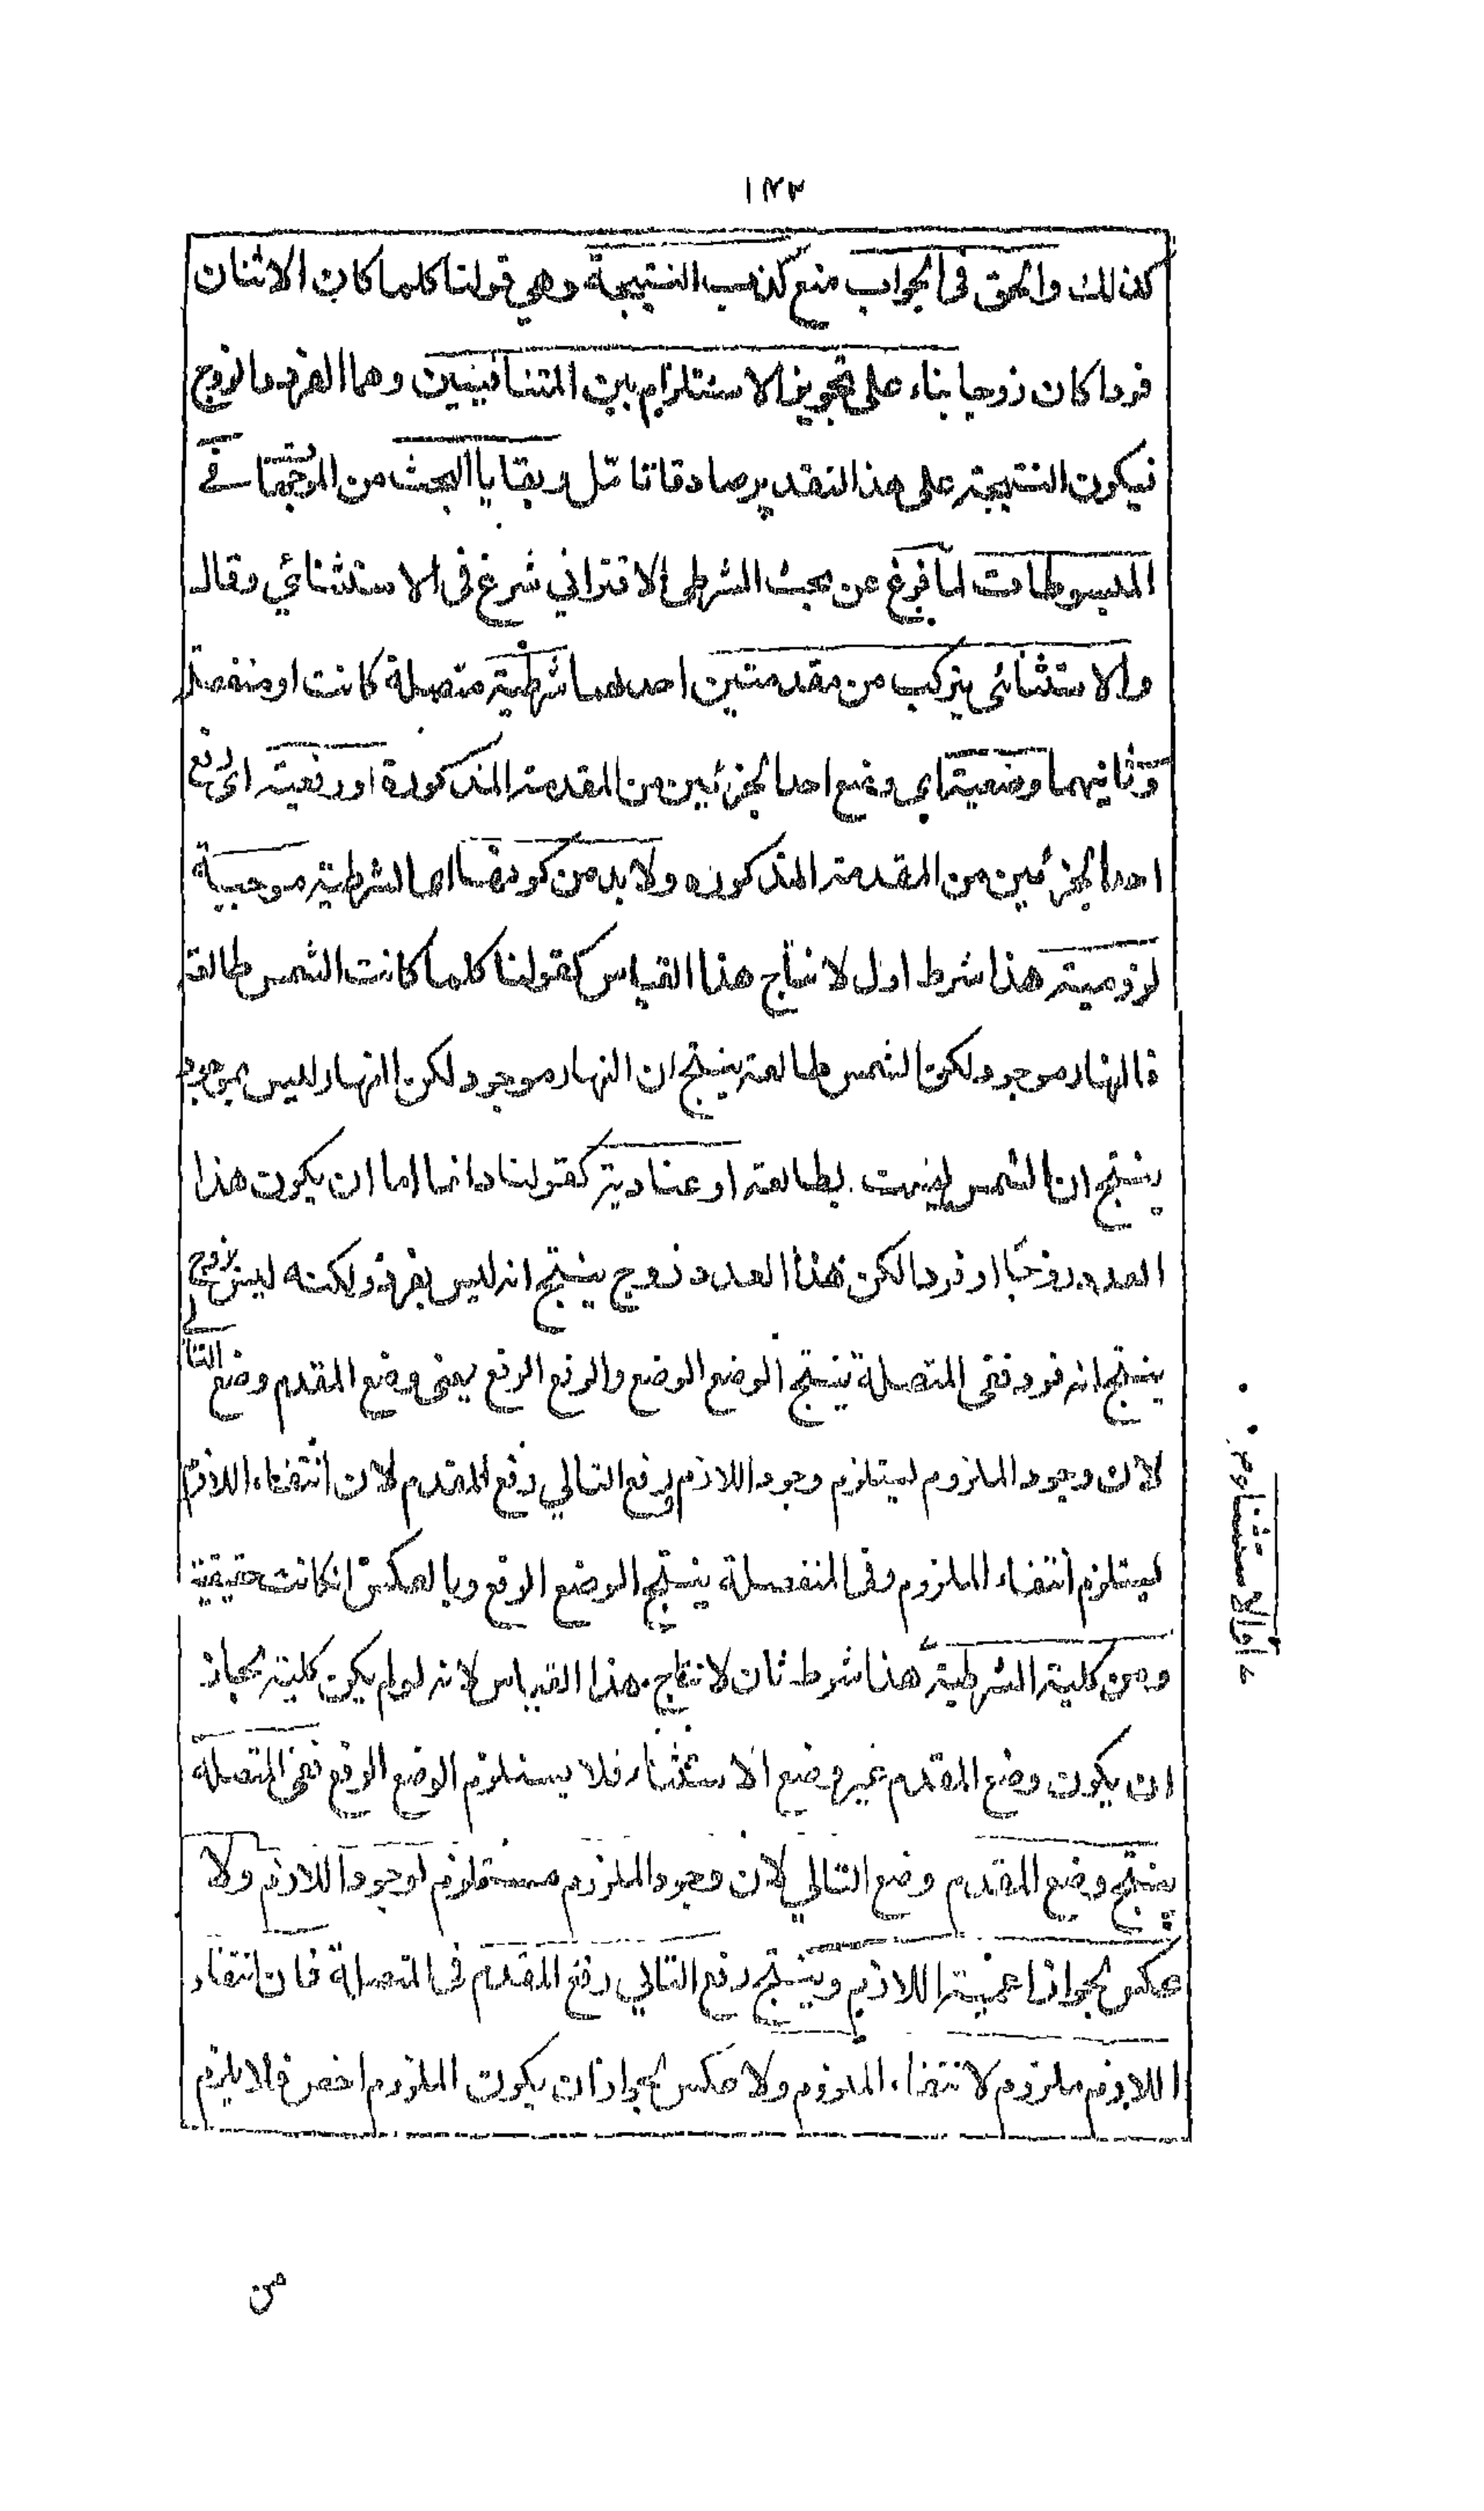 ١٢٣
كذلك والحق فى الجواب منع كذب النتيجة وهي قولنا كلما كان الاثنان
فردا كان زوجا بناء على تجويز الاستلزام بين المتنافيين وهما الفرد والزوج
فيكون النتيجة على هذا التقدير صادقا تأمل وبقايا البحث من المرجحتا فے
المبسوطات لما فرغ عن بحث الشرطى الاقتراني شرع فى الاستثنائي وقال
والاستثنائى يتركب من مقدمتين احدهما شرطية متصلة كانت او منفصلة
وثانيهما وضعية اي وضع احد الجزئين من المقدمة المذكورة او رفعية اى رفع
احد الجزئين من المقدمة المذكوره ولا بد من كونها اى الشرطية موجبة
لزومية هذا شرط اول لانتاج هذا القياس كقولنا كلما كانت الشمس طالعة
فالنهار موجود لكن الشمس طالعة ينتج ان النهار موجود لكن النهار ليس بموجود
ينتج ان الشمس ليست بطالعة او عنادية كقولنا دائما اما ان يكون هذا
العدد زوجا او فردا لكن هذا العدد زوج ينتج انه ليس بفرد ولكنه ليس بزوج
ينتج انه فرد ففى المتصلة ينتج الوضع الوضع والرفع الرفع يعنى وضع المقدم وضع التالي
لان وجود الملزوم يستلزم وجود اللازم ورفع التالي رفع المقدم لان انتفاء اللازم
يستلزم انتفاء الملزوم وفى المنفصلة ينتج الوضع الرفع وبالعكس انكانت حقيقية
ومن كلية الشرطية هذا شرط ثان لانتاج هذا القياس لانه لو لم يكن كلية لجاز
ان يكون وضع المقدم غير وضع الاستثناء فلا يستلزم الوضع الوضع ففى المتصله
ينتج وضع المقدم وضع التالي لان وجود الملزوم مستلزم لوجود اللازم ولا
عكس لجواز اعمية اللازم وينتج رفع التالي رفع المقدم فى المتصلة فان انتفاء
اللازم ملزوم لانتفاء الملزوم ولا عكس لجواز ان يكون الملزوم اخص فلا يلزم
من